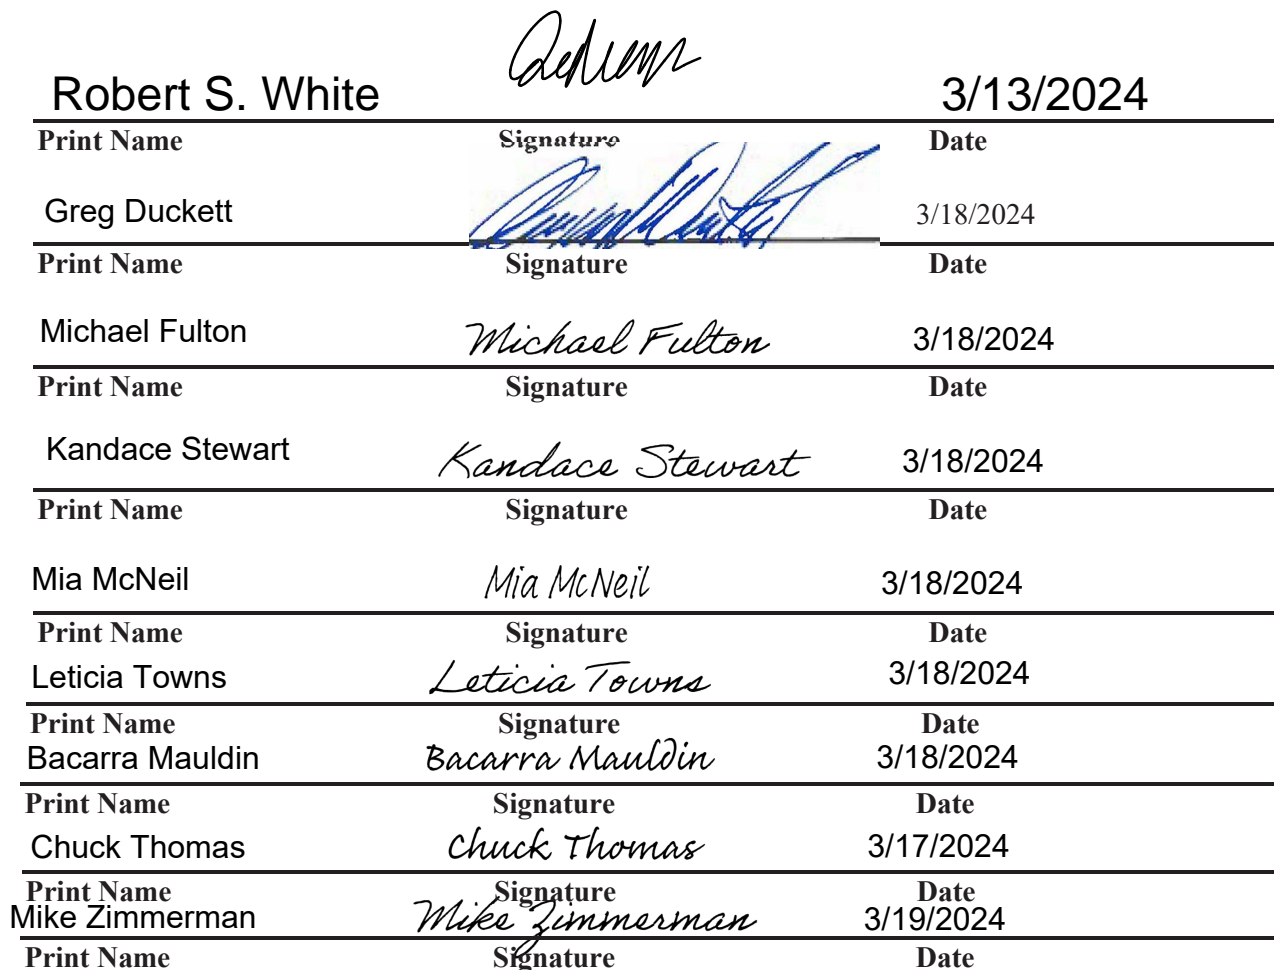 Robert S. White 3/13/2024
Print Name Signature Date
Greg Duckett 3/18/2024
Print Name Signature Date
Michael Fulton Michael Fulton 3/18/2024
Print Name Signature Date
Kandace Stewart Kandace Stewart 3/18/2024
Print Name Signature Date
Mia McNeil Mia McNeil 3/18/2024
Print Name Signature Date
Leticia Towns Leticia Towns 3/18/2024
Print Name Signature Date
Bacarra Mauldin Bacarra Mauldin 3/18/2024
Print Name Signature Date
Chuck Thomas Chuck Thomas 3/17/2024
Print Name Signature Date
Mike Zimmerman Mike Zimmerman 3/19/2024
Print Name Signature Date